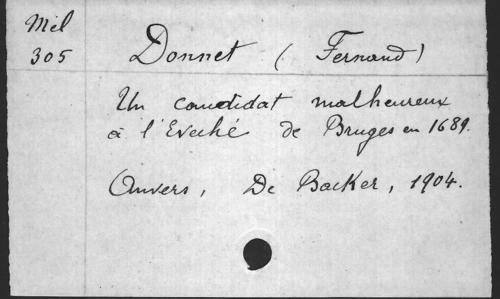 Mél
305
Donnet (Fernand)
Un candidat malheureux
à l'Evêché de Bruges en 1689.
Anvers, De Backer, 1904.